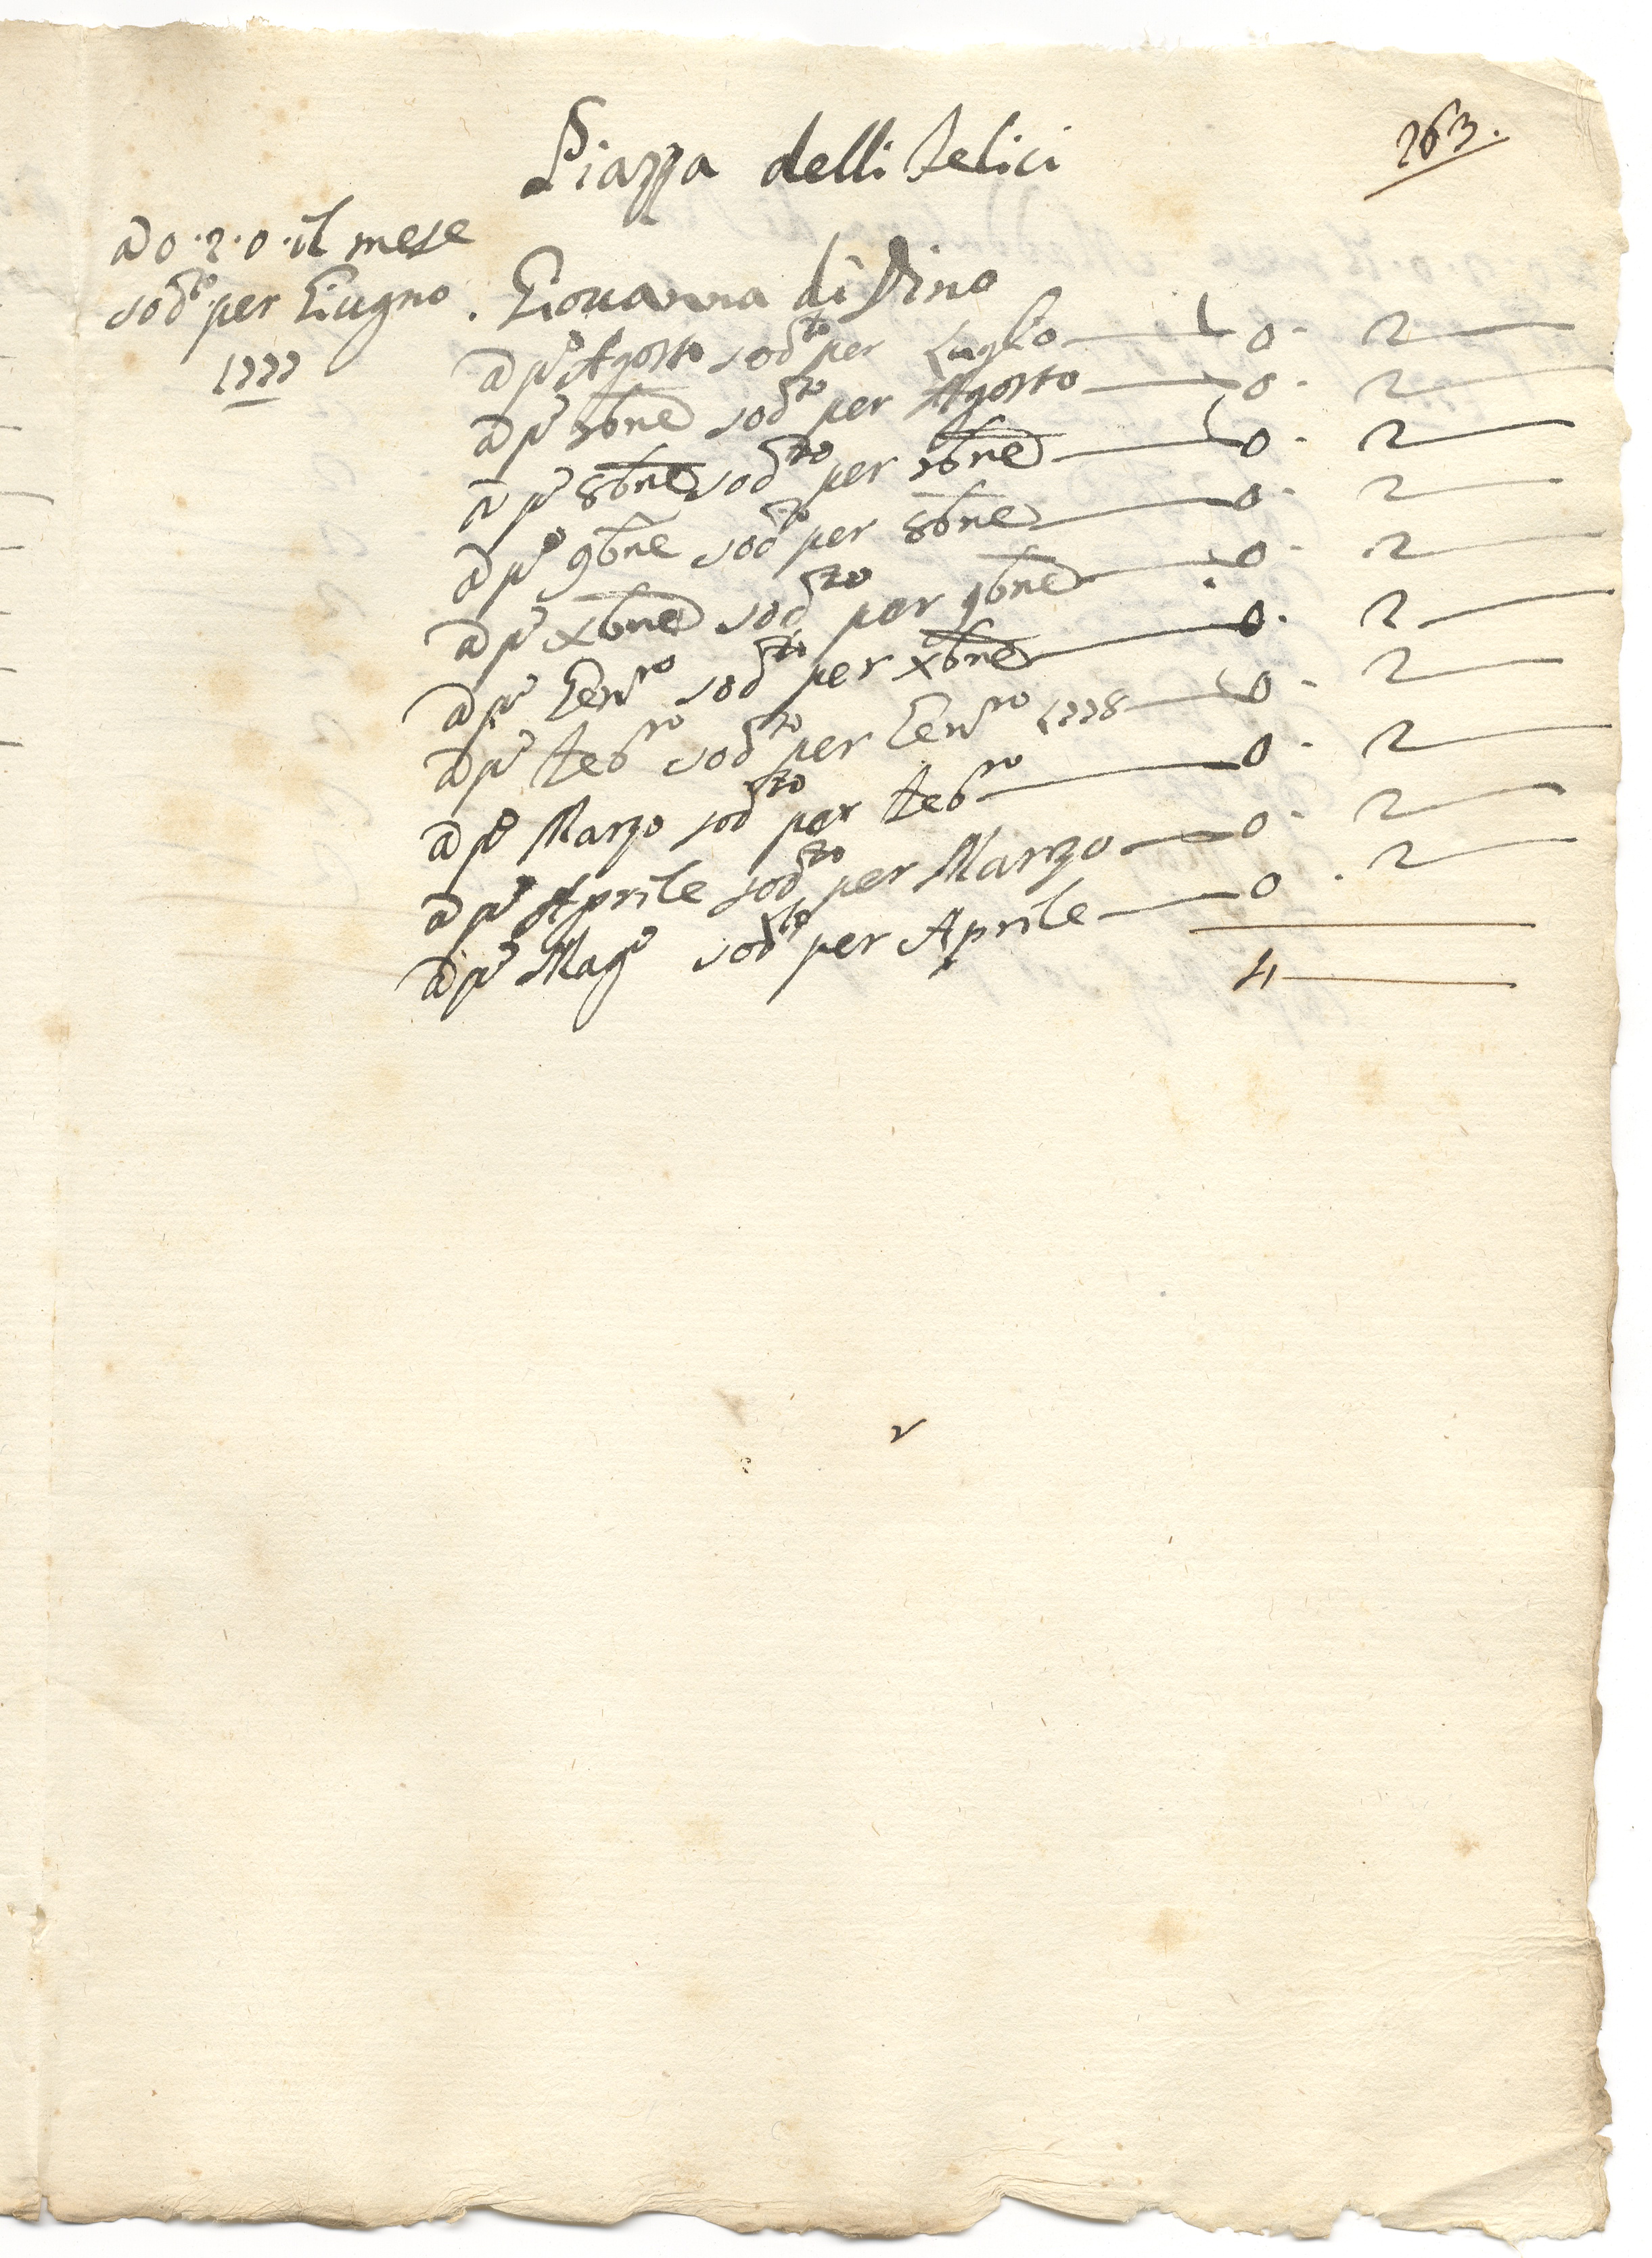 263.
Piazza delli Felici
a 0.2.0. il mese
sod.to per Giugno
1777
Giovanna di Dino
a p.o Agosto sod.to per Luglio — 0. 2 —
a p.o 7bre sod.to per Agosto — 0. 2 —
a p.o 8bre sod.to per 7bre — 0. 2 —
a p.o 9bre sod.to per 8bre — 0. 2 —
a p.o Xbre sod.to per 9bre — 0. 2 —
a p.o Gen.ro sod.to per Xbre — 0. 2 —
a p.o Feb.ro sod.to per Gen.ro 1778 — 0. 2 —
a p.o Marzo sod.to per Feb.ro — 0. 2 —
a p.o Aprile sod.to per Marzo — 0. 2 —
a p.o Mag.o sod.to per Aprile — 0. 2 —
4 —